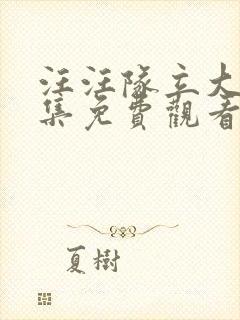 汪汪隊立大
集免費觀看
夏樹